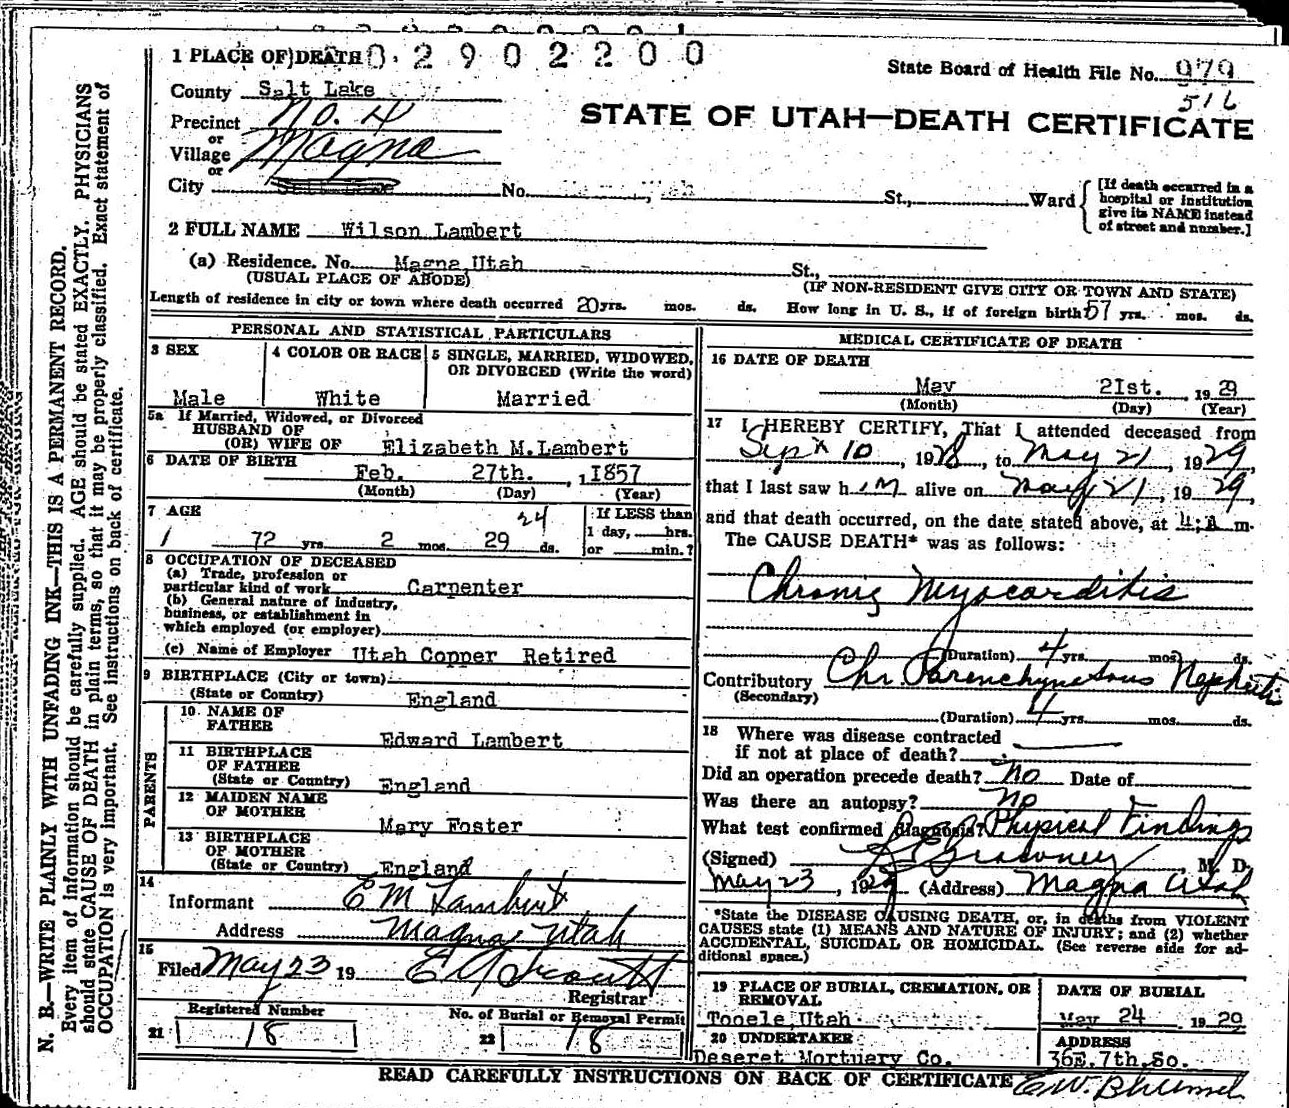 1 PLACE OF DEATH 0 2 9 0 2 2 0 0
State Board of Health File No. 979
516
County Salt Lake
STATE OF UTAH—DEATH CERTIFICATE
Precinct No. 4
or
Village Magna
or
City No. St., Ward
[If death occurred in a hospital or institution give its NAME instead of street and number.]
2 FULL NAME Wilson Lambert
(a) Residence. No. Magna, Utah St.,
(USUAL PLACE OF ABODE) (IF NON-RESIDENT GIVE CITY OR TOWN AND STATE)
Length of residence in city or town where death occurred 20 yrs. mos. ds. How long in U. S., if of foreign birth? 57 yrs. mos. ds.
PERSONAL AND STATISTICAL PARTICULARS
3 SEX
Male
4 COLOR OR RACE
White
5 SINGLE, MARRIED, WIDOWED, OR DIVORCED (Write the word)
Married
5a If Married, Widowed, or Divorced
HUSBAND OF
(OR) WIFE OF Elizabeth M. Lambert
6 DATE OF BIRTH
Feb. 27th. , 1857
(Month) (Day) (Year)
7 AGE 24 If LESS than
72 yrs. 2 mos. 29 ds. 1 day, hrs.
or min.?
8 OCCUPATION OF DECEASED
(a) Trade, profession or
particular kind of work Carpenter
(b) General nature of industry,
business, or establishment in
which employed (or employer)
(c) Name of Employer Utah Copper Retired
9 BIRTHPLACE (City or town)
(State or Country) England
PARENTS
10 NAME OF
FATHER Edward Lambert
11 BIRTHPLACE
OF FATHER
(State or Country) England
12 MAIDEN NAME
OF MOTHER Mary Foster
13 BIRTHPLACE
OF MOTHER
(State or Country) England
14
Informant E M Lambert
Address Magna Utah
15
Filed May 23 19
Registrar
Registered Number
21 18
No. of Burial or Removal Permit
22 18
MEDICAL CERTIFICATE OF DEATH
16 DATE OF DEATH
May 21st. 1929
(Month) (Day) (Year)
17 I HEREBY CERTIFY, That I attended deceased from
Sept 10 , 1928, to May 21 , 1929,
that I last saw him alive on May 21 , 1929,
and that death occurred, on the date stated above, at 4:A m.
The CAUSE DEATH* was as follows:
Chronic Myocarditis
(Duration) 4 yrs. mos. ds.
Contributory Chr. Parenchymatous Nephritis
(Secondary)
(Duration) 4 yrs. mos. ds.
18 Where was disease contracted
if not at place of death?
Did an operation precede death? No Date of
Was there an autopsy? no
What test confirmed diagnosis? Physical Findings
(Signed) M. D.
May 23, 1929 (Address) Magna Utah
*State the DISEASE CAUSING DEATH, or, in deaths from VIOLENT
CAUSES state (1) MEANS AND NATURE OF INJURY; and (2) whether
ACCIDENTAL, SUICIDAL OR HOMICIDAL. (See reverse side for ad-
ditional space.)
19 PLACE OF BURIAL, CREMATION, OR
REMOVAL
Tooele, Utah
DATE OF BURIAL
May 24 1929
20 UNDERTAKER
Deseret Mortuary Co.
ADDRESS
36E. 7th, So.
READ CAREFULLY INSTRUCTIONS ON BACK OF CERTIFICATE
N. B.—WRITE PLAINLY WITH UNFADING INK—THIS IS A PERMANENT RECORD.
Every item of information should be carefully supplied. AGE should be stated EXACTLY. PHYSICIANS
should state CAUSE OF DEATH in plain terms, so that it may be properly classified. Exact statement of
OCCUPATION is very important. See instructions on back of certificate.